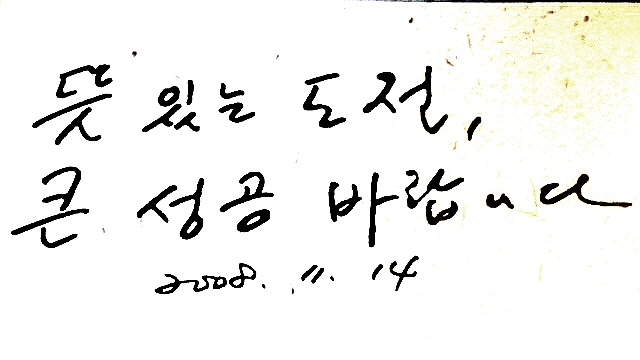 뜻 있는 도전,
큰 성공 바랍니다
2008. 11. 14